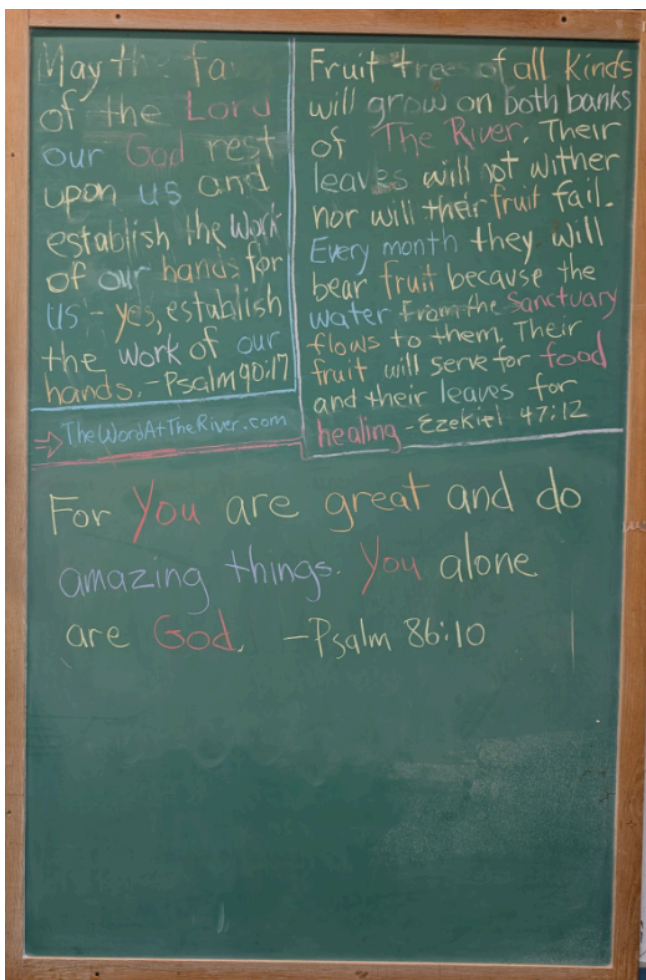 May the fa
of the Lord
our God rest
upon us and
establish the work
of our hands for
us - yes, establish
the work of our
hands. - Psalm 90:17
TheWordAtTheRiver.com
Fruit tree of all kinds
will grow on both banks
of The River. Their
leaves will not wither
nor will their fruit fail.
Every month they will
bear fruit because the
water from the Sanctuary
flows to them. Their
fruit will serve for food
and their leaves for
healing - Ezekiel 47:12
For You are great and do
amazing things. You alone
are God. - Psalm 86:10